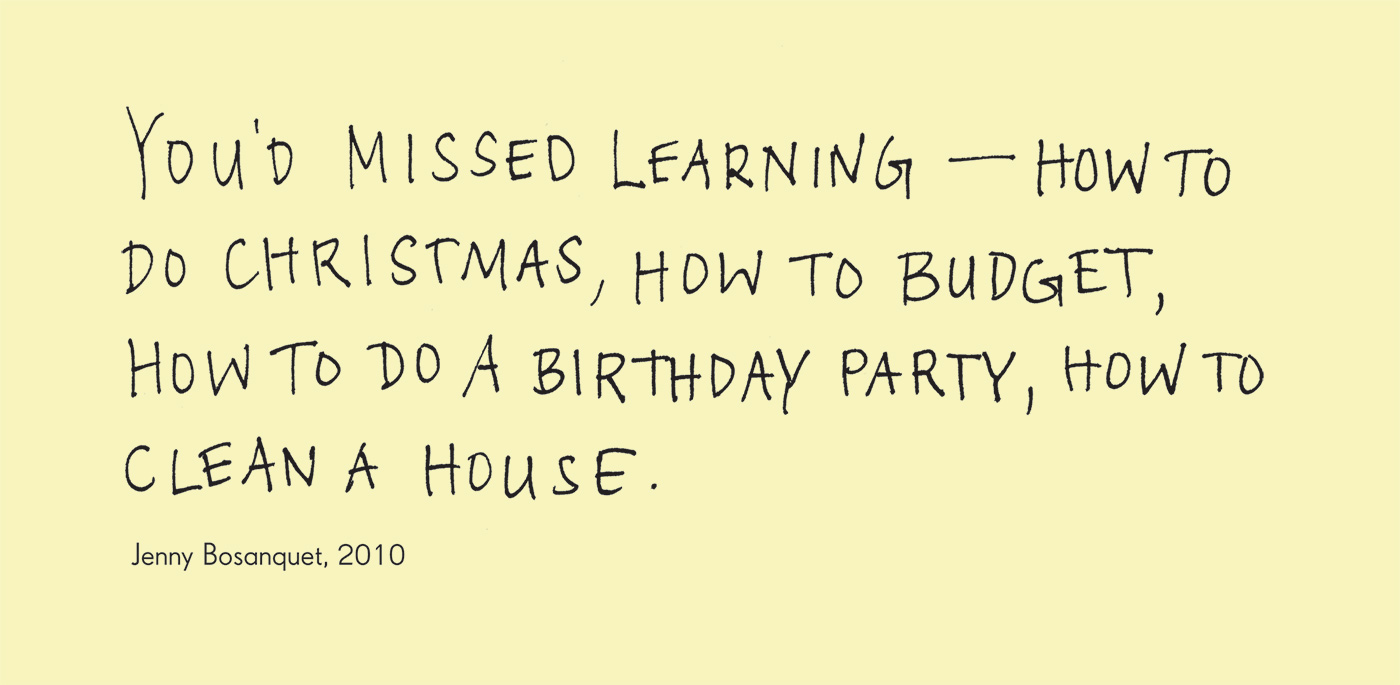 YOU'D MISSED LEARNING — HOW TO
DO CHRISTMAS, HOW TO BUDGET,
HOW TO DO A BIRTHDAY PARTY, HOW TO
CLEAN A HOUSE.
Jenny Bosanquet, 2010